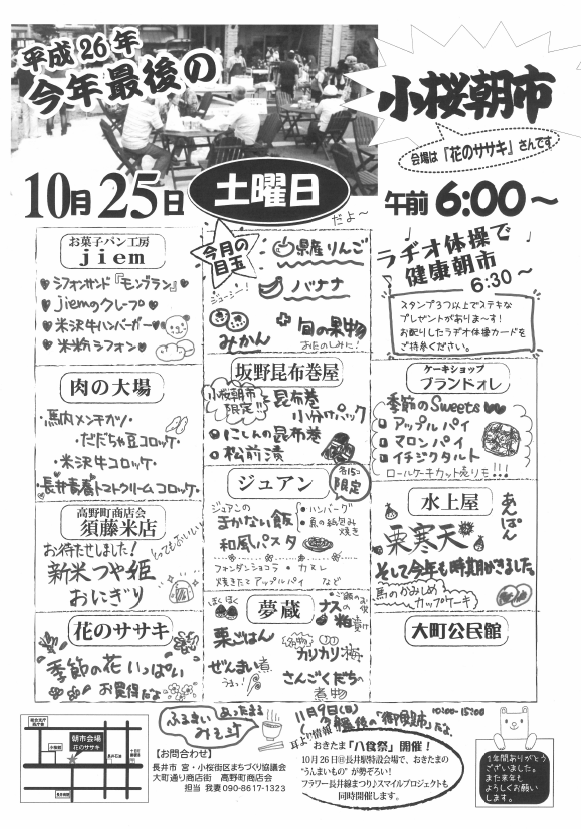 平成26年
今年最後の
小桜朝市
会場は「花のササキ」さんです
10月25日
土曜日
だよ〜
午前6:00〜
お菓子パン工房
jiem
シフォンサンド『モンブラン』
jiemのクレープ
米沢牛ハンバーガー
米粉シフォン
今月の目玉
県産りんご
ジューシー!
バナナ
みかん
旬の果物
お楽しみに!
ラヂオ体操で
健康朝市
6:30〜
スタンプ3つ以上でステキな
プレゼントがありま〜す!
お配りしたラヂオ体操カードを
ご持参ください。
肉の大場
・馬肉メンチカツ・
だだちゃ豆コロッケ・
・米沢牛コロッケ・
長井青唐トマトクリームコロッケ
坂野昆布巻屋
小桜朝市
限定!!
昆布巻
小分けパック
にしんの昆布巻
松前漬
ケーキショップ
ブランドォレ
季節のSweets
アップルパイ
マロンパイ
イチジクタルト
ロールケーキカット売りモ!!!
高野町商店会
須藤米店
お待たせしました!
とってもおいしい
新米つや姫
おにぎり
ジュアン
各15コ
限定
ジュアンの
まかない飯
・ハンバーグ
・夏の紙包み
焼き
和風パスタ
フォンダンショコラ・カヌレ
焼きたてアップルパイ など
水上屋
あんぱん
栗寒天
そして今年も時期がきました。
馬のかみしめ
カップケーキ
花のササキ
季節の花いっぱい
お買得だな
ほくほく
夢蔵
栗ごはん
ぜんまい煮
うまっ!
ご飯のお供
ナスの
粕漬け
名物
カリカリ梅
さんごくだちの
煮物
大町公民館
朝市会場
花のササキ
ふるまい あったまる
みそ汁
【お問合わせ】
長井市 宮・小桜街区まちづくり協議会
大町通り商店街 高野町商店会
担当 我妻090-8617-1323
11月9日(日)
10:00-15:00
最後の「御殿市」だな。
耳より情報
おきたま「八食祭」開催!
10月26日㊐長井駅特設会場で、おきたまの
“うんまいもの”が勢ぞろい!
フラワー長井線まつり♪スマイルプロジェクトも
同時開催します。
1年間ありがとう
ございました。
また来年も
よろしくお願い
します。